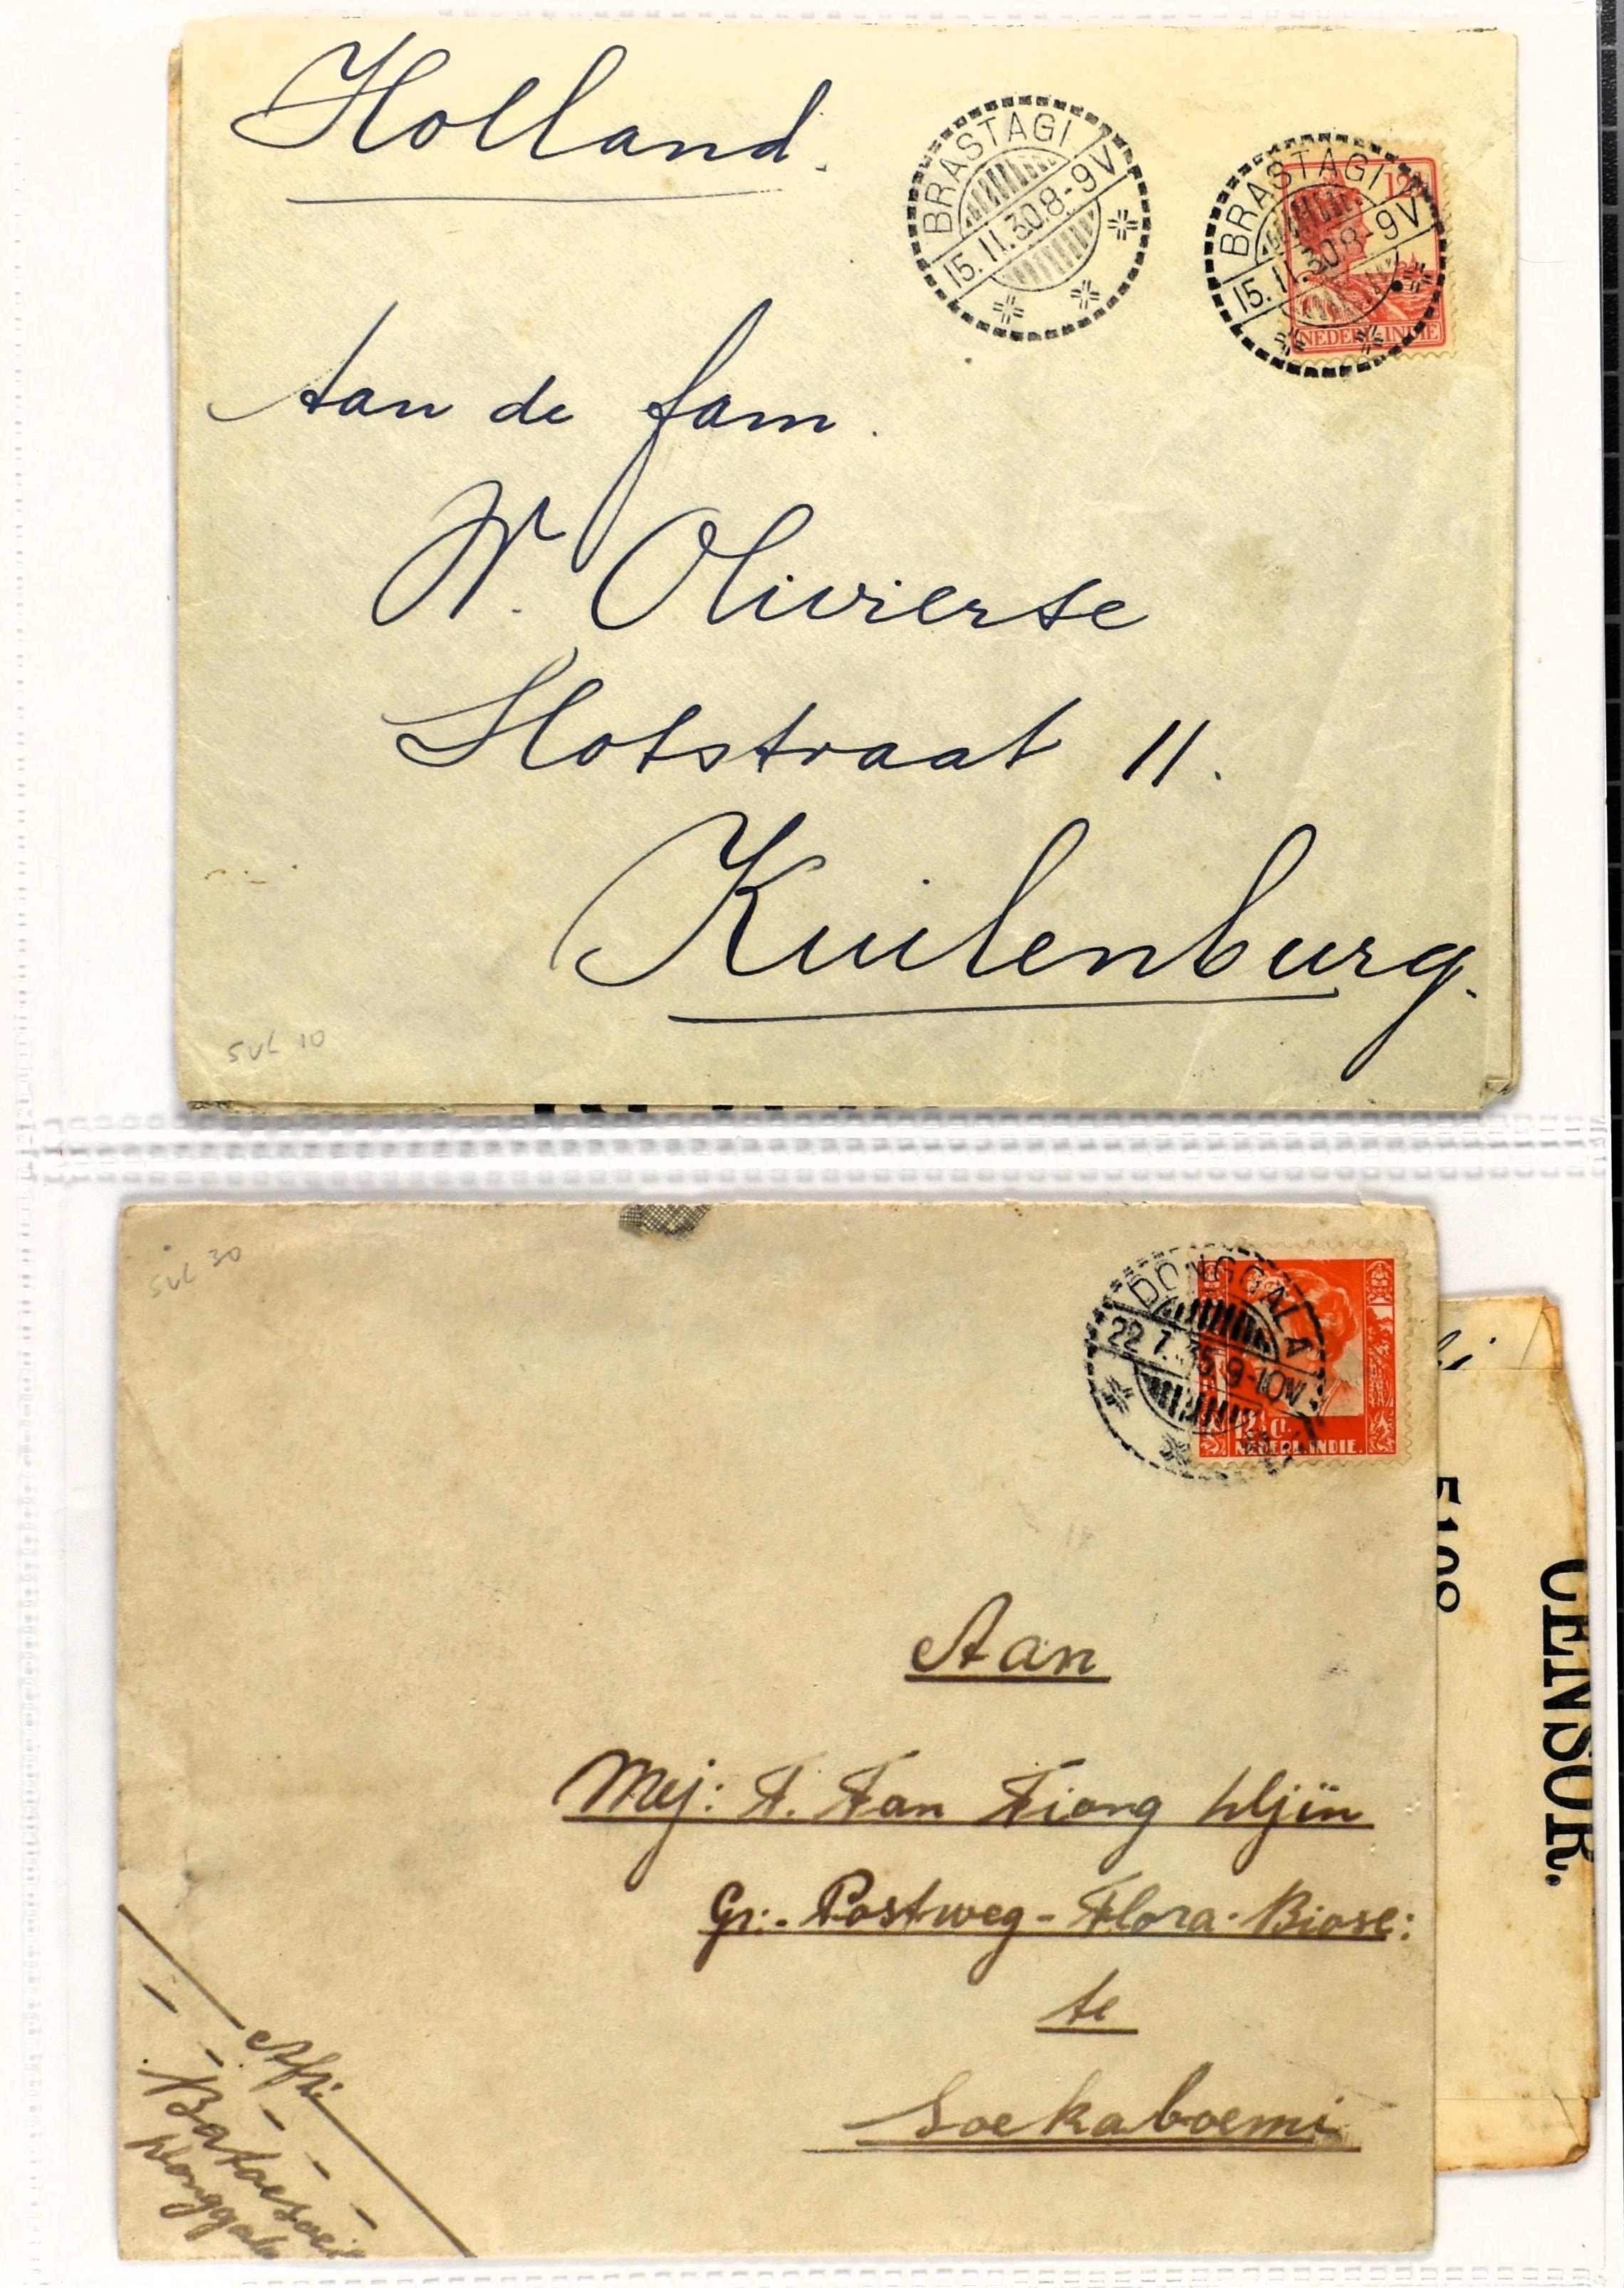 Holland.
BRASTAGI
15.11.30.8-9V
BRASTAGI
15.11.30.8-9V
12½
NEDERL. INDIE
Aan de fam.
W. Olivierse
Slotstraat 11.
Kuilenburg.
SVL 10
SVL 30
DONGGALA
22.7.35.9-10V
12½ ct.
NEDERL. INDIE.
5108
CENSOR.
Aan
Mej: F. Fan Fiong
Gr:- Postweg - Flora-Biosc:
te
Soekaboemi
Afz:
Batoesoei
Donggala